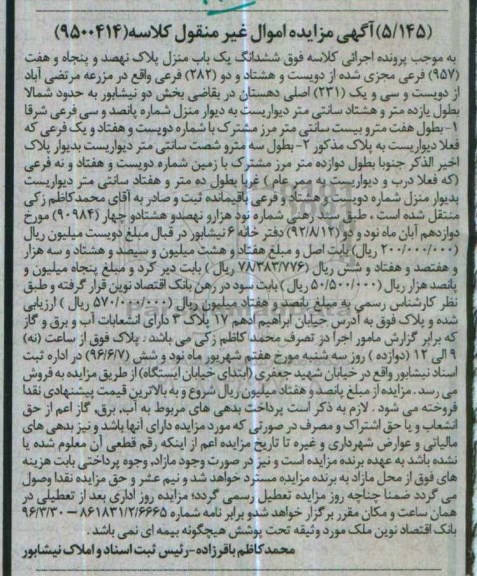 (۵/۱۴۵) آگهی مزایده اموال غیر منقول کلاسه (۹۵۰۰۴۱۴)
به موجب پرونده اجرائی کلاسه فوق ششدانگ یک باب منزل پلاک نهصد و پنجاه و هفت
(۹۵۷) فرعی مجزی شده از دویست و هشتاد و دو (۲۸۲) فرعی واقع در مزرعه مرتضی آباد
از دویست و سی و یک (۲۳۱) اصلی دهستان در بقاضی بخش دو نیشابور به حدود شمالا
بطول یازده متر و هشتاد سانتی متر دیواریست به دیوار منزل شماره پانصد و سی فرعی شرقا
۱- بطول هفت مترو بیست سانتی متر مرز مشترک با شماره دویست و هفتاد و یک فرعی که
فعلا دیواریست به پلاک مذکور ۲- بطول سه مترو شصت سانتی متر دیواریست بدیوار پلاک
اخیر الذکر جنوبا بطول دوازده متر مرز مشترک با زمین شماره دویست و هفتاد و نه فرعی
(که فعلا درب و دیواریست به ممر عام) غربا بطول ده متر و هفتاد سانتی متر دیواریست
بدیوار منزل شماره دویست و هشتاد و فرعی باقیمانده ثبت و صادر به آقای محمدکاظم زکی
منتقل شده است ، طبق سند رهنی شماره نود هزارو نهصدو هشتادو چهار (۹۰۹۸۴) مورخ
دوازدهم آبان ماه نود و دو (۹۲/۸/۱۲) دفتر خانه ۶ نیشابور در قبال مبلغ دویست میلیون ریال
(۲۰۰/۰۰۰/۰۰۰ ریال) بابت اصل و مبلغ هفتاد و هشت میلیون و سیصد و هشتاد و سه هزار
و هفتصد و هفتاد و شش ریال (۷۸/۳۸۳/۷۷۶ ریال) بابت دیر کرد و مبلغ پنجاه میلیون و
پانصد هزار ریال (۵۰/۵۰۰/۰۰۰ ریال) بابت سود در رهن بانک اقتصاد نوین قرار گرفته و طبق
نظر کارشناس رسمی به مبلغ پانصد و هفتاد میلیون ریال (۵۷۰/۰۰۰/۰۰۰ ریال) ارزیابی
شده و پلاک فوق به آدرس خیابان ابراهیم ادهم ۱۷ پلاک ۳ دارای انشعابات آب و برق و گاز
که برابر گزارش مامور اجرا در تصرف محمد کاظم زکی می باشد ، پلاک فوق از ساعت (نه)
۹ الی ۱۲ (دوازده) روز سه شنبه مورخ هفتم شهریور ماه نود و شش (۹۶/۶/۷) در اداره ثبت
اسناد نیشابور واقع در خیابان شهید جعفری (ابتدای خیابان ایستگاه) از طریق مزایده به فروش
می رسد . مزایده از مبلغ پانصد و هفتاد میلیون ریال شروع و به بالاترین قیمت پیشنهادی نقدا
فروخته می شود . لازم به ذکر است پرداخت بدهی های مربوط به آب، برق، گاز اعم از حق
انشعاب و یا حق اشتراک و مصرف در صورتی که مورد مزایده دارای آنها باشد و نیز بدهی های
مالیاتی و عوارض شهرداری و غیره تا تاریخ مزایده اعم از اینکه رقم قطعی آن معلوم شده یا
نشده باشد به عهده برنده مزایده است و نیز در صورت وجود مازاد، وجوه پرداختی بابت هزینه
های فوق از محل مازاد به برنده مزایده مسترد خواهد شد و نیم عشر و حق مزایده نقدا وصول
می گردد ضمنا چنانچه روز مزایده تعطیل رسمی گردد؛ مزایده روز اداری بعد از تعطیلی در
همان ساعت و مکان مقرر برگزار خواهد شدو برابر نامه شماره ۸۶۱۸۳۱/۲/۶۶۶۵ – ۹۶/۳/۳۰
بانک اقتصاد نوین ملک مورد وثیقه تحت پوشش هیچگونه بیمه ای نمی باشد .
محمد کاظم باقرزاده - رئیس ثبت اسناد و املاک نیشابور